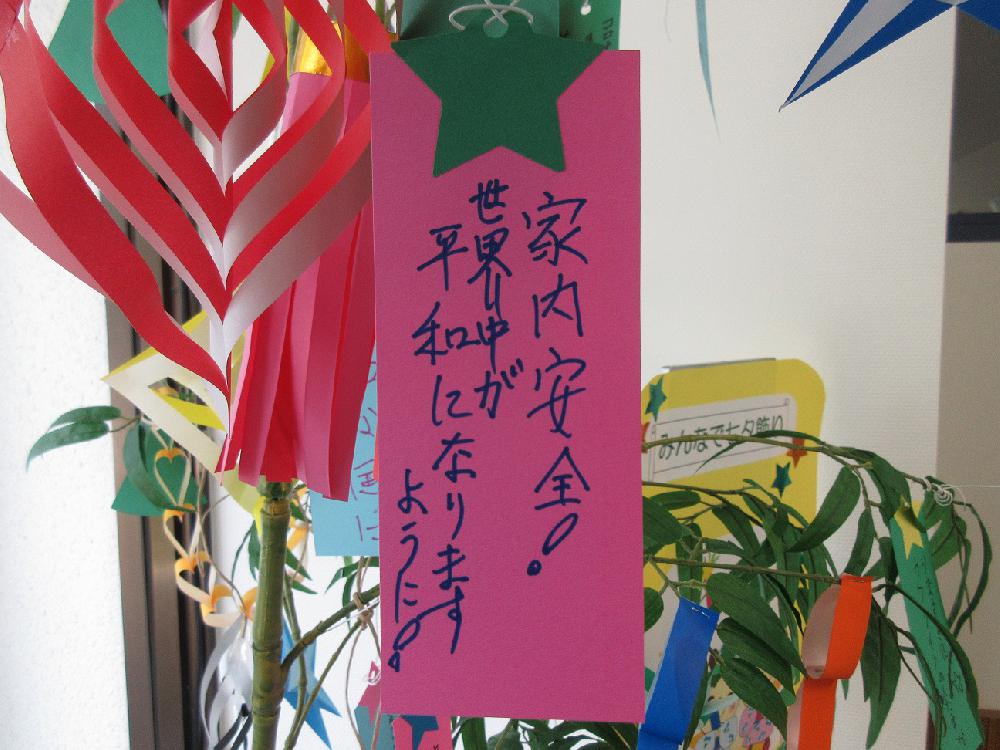 家内安全!
世界中が
平和になります
ように!
みんなで七夕飾り